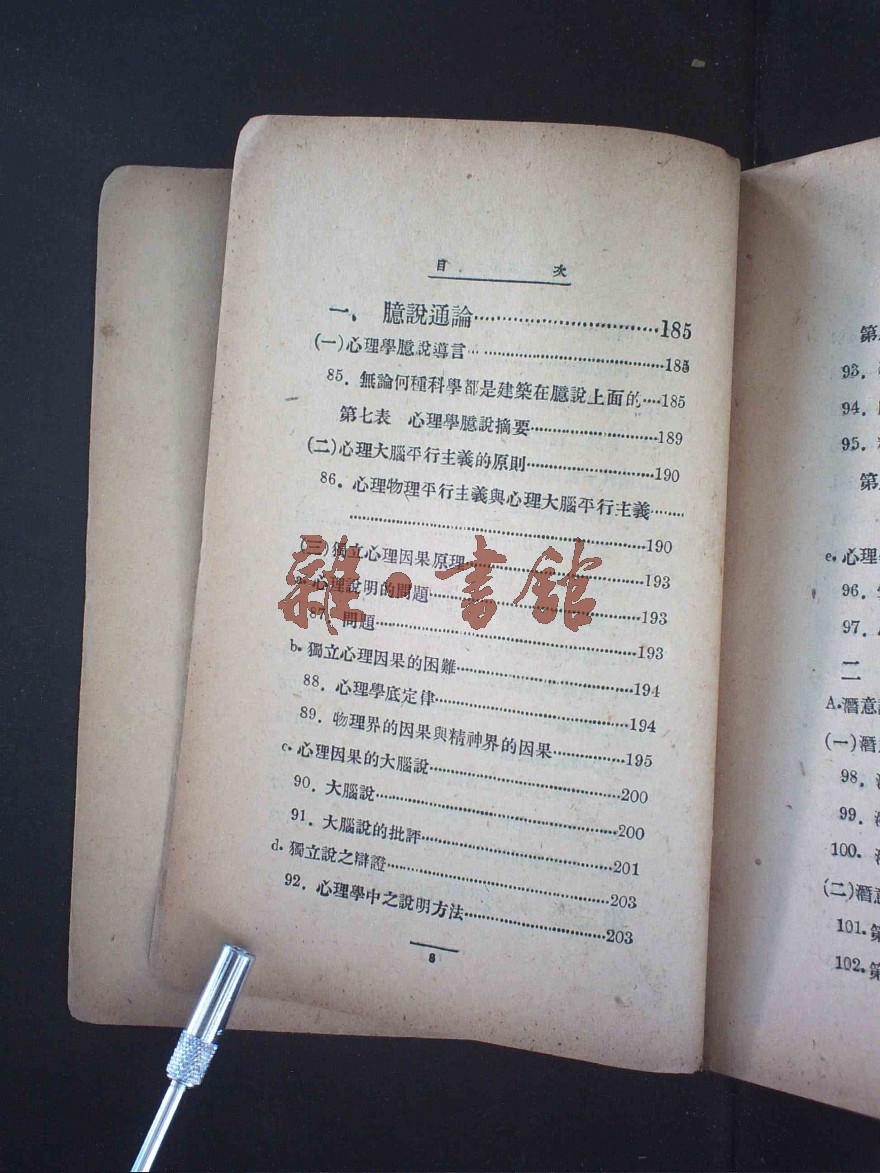 目 次
一、 臆說通論……………………185
(一)心理學臆說導言……………………185
85．無論何種科學都是建築在臆說上面的……185
第七表 心理學臆說摘要……………………189
(二)心理大腦平行主義的原則……………………190
86．心理物理平行主義與心理大腦平行主義……
……………………190
(三)獨立心理因果原理……………………193
a．心理說明的問題……………………193
87．問題……………………193
b．獨立心理因果的困難……………………194
88．心理學底定律……………………194
89．物理界的因果與精神界的因果……………………195
c．心理因果的大腦說……………………200
90．大腦說……………………200
91．大腦說的批評……………………201
d．獨立說之辯證……………………203
92．心理學中之說明方法……………………203
8
雜·書館
第
93．
94．
95．
第
e．心理
96．
97．
二
A．潛意
(一)潛
98．
99．
100．
(二)潛意
101．第
102．第